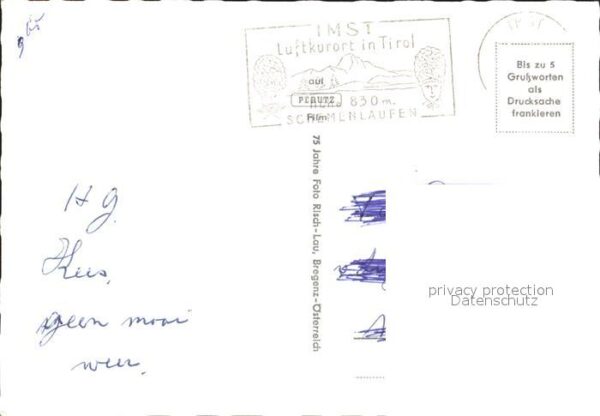 IMST
Luftkurort in Tirol
auf
PERUTZ
Film
HÖHE 830 m.
SCHEMENLAUFEN
Bis zu 5
Grußworten
als
Drucksache
frankieren
75 Jahre Foto Risch-Lau, Bregenz-Österreich
H G.
Kees,
geen mooi
weer.
privacy protection
Datenschutz